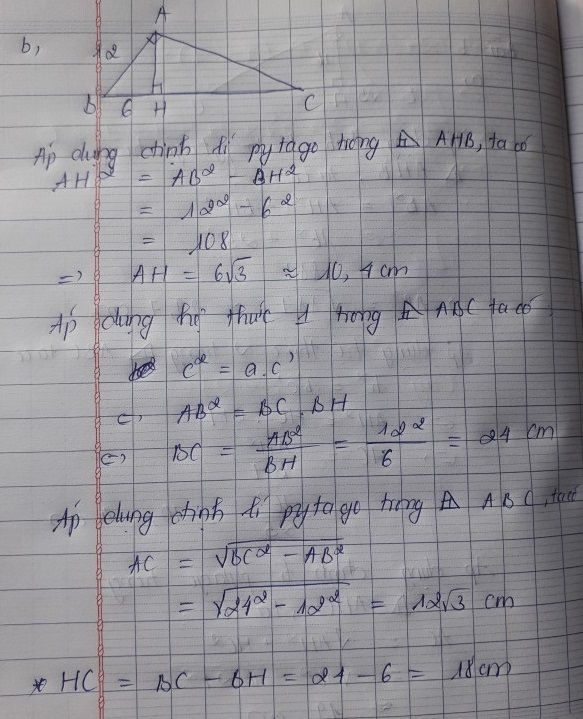 b,
A
12
B 6 H C
Áp dụng định lí pytago trong ⊿ AHB, ta có
AH² = AB² - BH²
= 12² - 6²
= 108
=> AH = 6√3 ≈ 10,4cm
Áp dụng hệ thức 1 trong ⊿ ABC ta có:
c² = a.c'
<=> AB² = BC . BH
<=> BC = AB²/BH = 12²/6 = 24 cm
Áp dụng định lí pytago trong ⊿ ABC, ta có
AC = √(BC² - AB²)
= √(24² - 12²) = 12√3 cm
* HC = BC - BH = 24 - 6 = 18cm